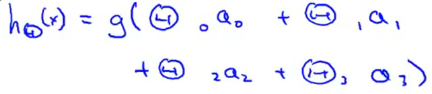 h_Θ(x) = g(Θ₀a₀ + Θ₁a₁
+ Θ₂a₂ + Θ₃a₃)